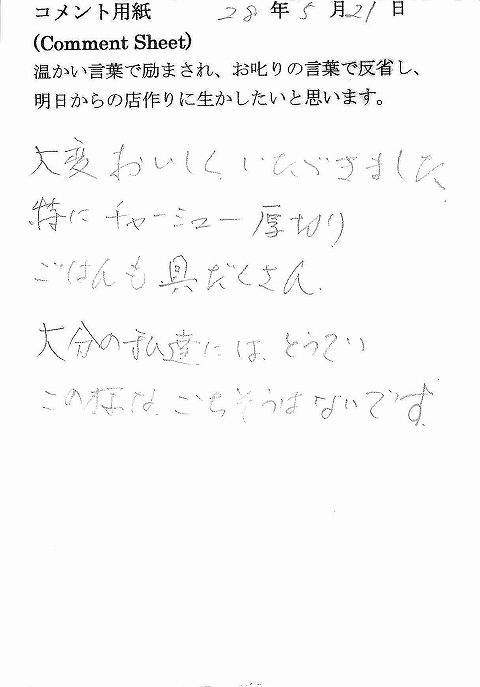 コメント用紙 28年5月21日
(Comment Sheet)
温かい言葉で励まされ、お叱りの言葉で反省し、
明日からの店作りに生かしたいと思います。
大変おいしくいただきました、
特にチャーシュー厚切り
ごはんも具だくさん.
大分の私達には、とうてい
この様な、ごちそうはないです.